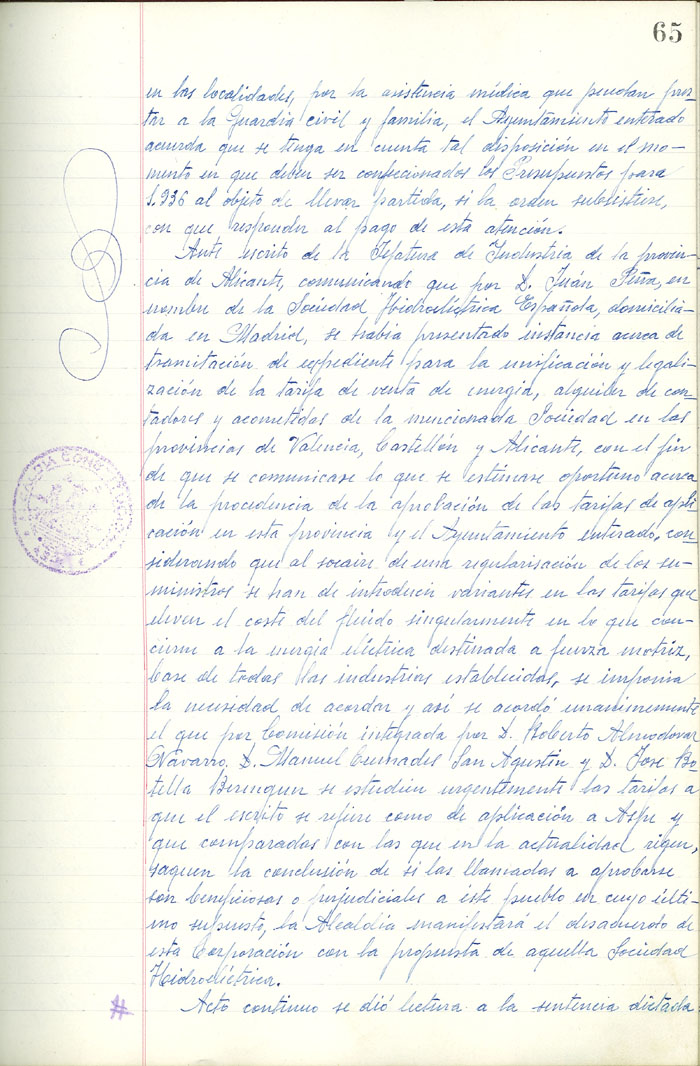 65
en las localidades, por la asistencia médica que puedan pres-
tar a la Guardia civil y familia, el Ayuntamiento enterado
acuerda que se tenga en cuenta tal disposición en el mo-
mento en que deben ser confeccionados los Presupuestos para
1.936 al objeto de llevar partida, si la orden subsistiere,
con que responder al pago de esta atención.
Ante escrito de la Jefatura de Industria de la provin-
cia de Alicante, comunicando que por D. Juán Peña, en
nombre de la Sociedad Hidroeléctrica Española, domicilia-
da en Madrid, se había presentado instancia acerca de
tramitación de expediente para la unificación y legali-
zación de la tarifa de venta de energia, alquiler de con-
tadores y acometidas de la mencionada Sociedad en las
provincias de Valencia, Castellón y Alicante, con el fin
de que se comunicase lo que se estimase oportuno acerca
de la procedencia de la aprobación de las tarifas de apli-
cación en esta provincia y el Ayuntamiento enterado, con-
siderando que al socaire de una regularisación de los su-
ministros se han de introducir variantes en las tarifas que
eleven el coste del fluido singularmente en lo que con-
cierne a la energia eléctrica destinada a fuerza motriz,
base de todas las industrias establecidas, se imponia
la necesidad de acordar y así se acordó unanimemente
el que por Comisión integrada por D. Roberto Almodovar
Navarro, D. Manuel Cremades San Agustin y D. Jose Bo-
tella Berenguer se estudien urgentemente las tarifas a
que el escrito se refiere como de aplicación a Aspe y
que comparados con las que en la actualidad rigen,
saquen la conclusión de si las llamadas a aprobarse
son beneficiosas o perjudiciales a este pueblo en cuyo últi-
mo supuesto, la Alcaldia manifestará el desacuerdo de
esta Corporación con la propuesta de aquella Sociedad
Hidroeléctrica.
# Acto continuo se dió lectura a la sentencia dictada